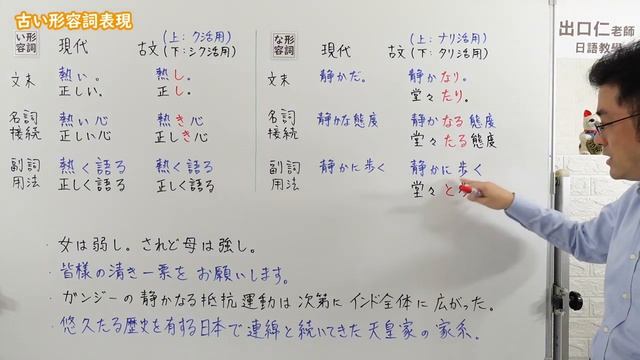 古い形容詞表現
出口仁老師
日語教學
い形容詞
現代
古文
(上：ク活用)
(下：シク活用)
な形容詞
現代
古文
(上：ナリ活用)
(下：タリ活用)
文末
熱い。
熱し。
正しい。
正し。
文末
静かだ。
静かなり。
堂々たり。
名詞接続
熱い心
熱き心
正しい心
正しき心
名詞接続
静かな態度
静かなる態度
堂々たる態度
副詞用法
熱く語る
熱く語る
正しく語る
正しく語る
副詞用法
静かに歩く
静かに歩く
堂々と
・女は弱し。されど母は強し。
・皆様の清き一票をお願いします。
・ガンジーの静かなる抵抗運動は次第にインド全体に広がった。
・悠久たる歴史を有する日本で連綿と続いてきた天皇家の家系。